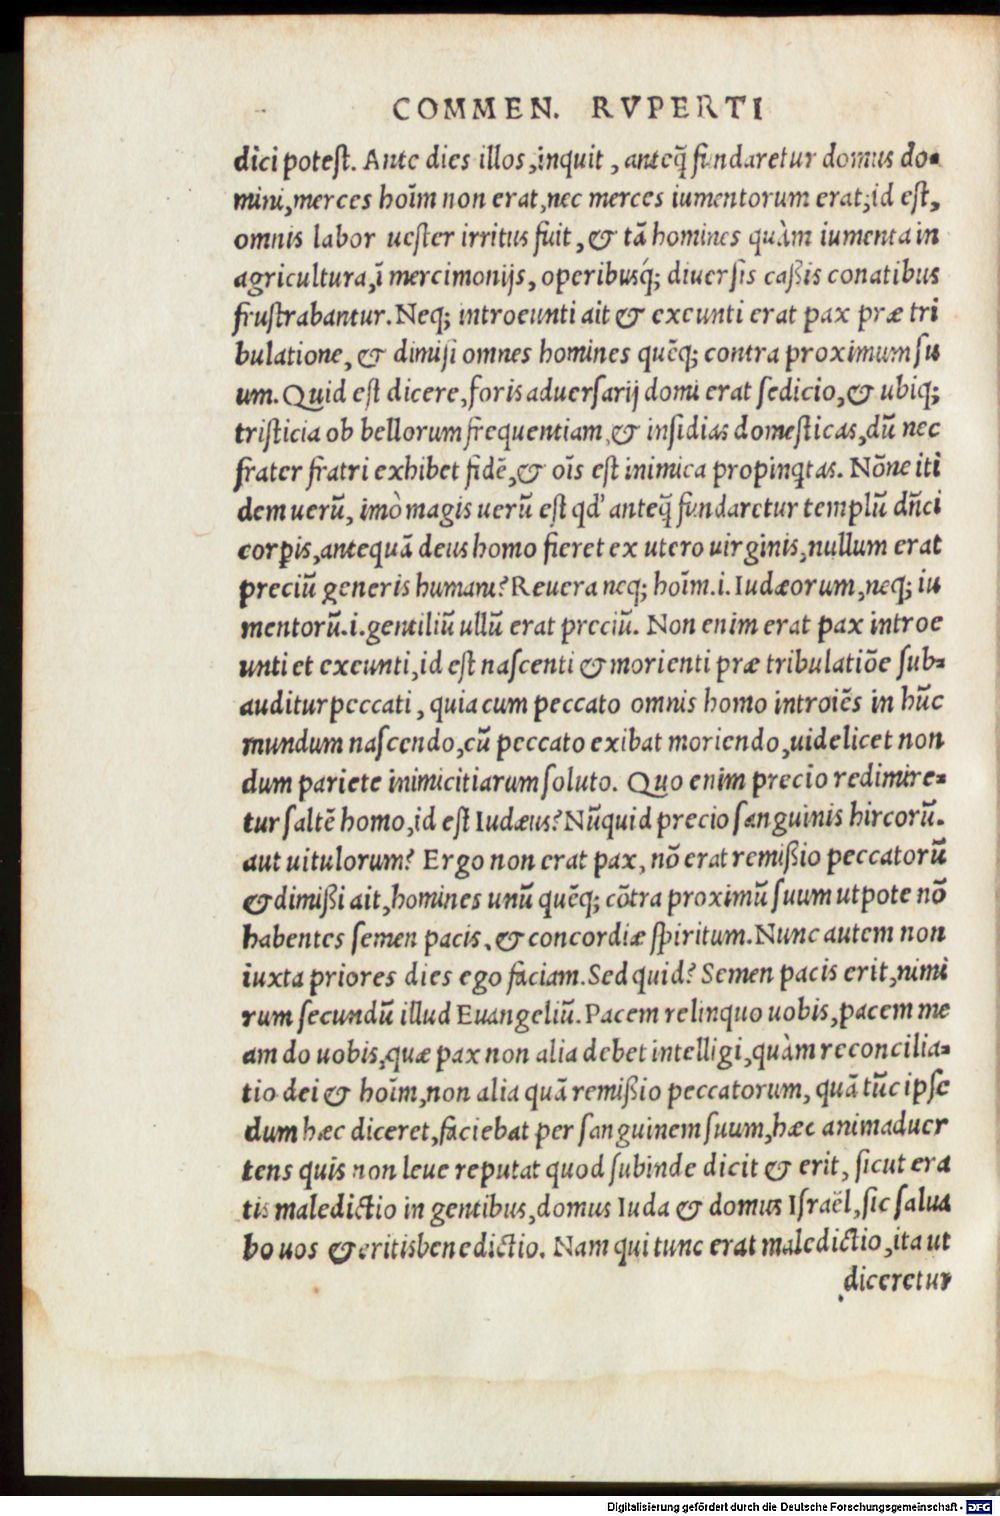 COMMEN. RVPERTI
dici potest. Ante dies illos, inquit, anteq̃ fundaretur domus do-
mini, merces hoĩm non erat, nec merces iumentorum erat, id est,
omnis labor uester irritus fuit, & tã homines quàm iumenta in
agricultura, ĩ mercimonijs, operibusq́; diuersis caßis conatibus
frustrabantur. Neq; introeunti ait & exeunti erat pax præ tri
bulatione, & dimisi omnes homines quẽq; contra proximum su
um. Quid est dicere, foris aduersarij domi erat sedicio, & ubiq;
tristicia ob bellorum frequentiam, & insidias domesticas, dũ nec
frater fratri exhibet fidẽ, & oĩs est inimica propinqtas. Nõne iti
dem uerũ, imò magis uerũ est qd' anteq̃ fundaretur templũ dñci
corpis, antequã deus homo fieret ex utero uirginis, nullum erat
preciũ generis humani? Reuera neq; hoĩm .i. Iudæorum, neq; iu
mentorũ .i. gentiliũ ullũ erat preciũ. Non enim erat pax introe
unti et exeunti, id est nascenti & morienti præ tribulatiõe sub-
auditur peccati, quia cum peccato omnis homo introiẽs in hũc
mundum nascendo, cũ peccato exibat moriendo, uidelicet non
dum pariete inimicitiarum soluto. Quo enim precio redimire-
tur saltẽ homo, id est Iudæus? Nũquid precio sanguinis hircorũ.
aut uitulorum? Ergo non erat pax, nõ erat remißio peccatorũ
& dimißi ait, homines unũ quẽq; cõtra proximũ suum utpote nõ
habentes semen pacis, & concordiæ spiritum. Nunc autem non
iuxta priores dies ego faciam. Sed quid? Semen pacis erit, nimi
rum secundũ illud Euangeliũ. Pacem relinquo uobis, pacem me
am do uobis, quæ pax non alia debet intelligi, quàm reconcilia-
tio dei & hoĩm, non alia quã remißio peccatorum, quã tũc ipse
dum hæc diceret, faciebat per sanguinem suum, hæc animaduer
tens quis non leue reputat quod subinde dicit & erit, sicut era
tis maledictio in gentibus, domus Iuda & domus Israël, sic salua
bo uos & eritis benedictio. Nam qui tunc erat maledictio, ita ut
diceretur
Digitalisierung gefördert durch die Deutsche Forschungsgemeinschaft - DFG